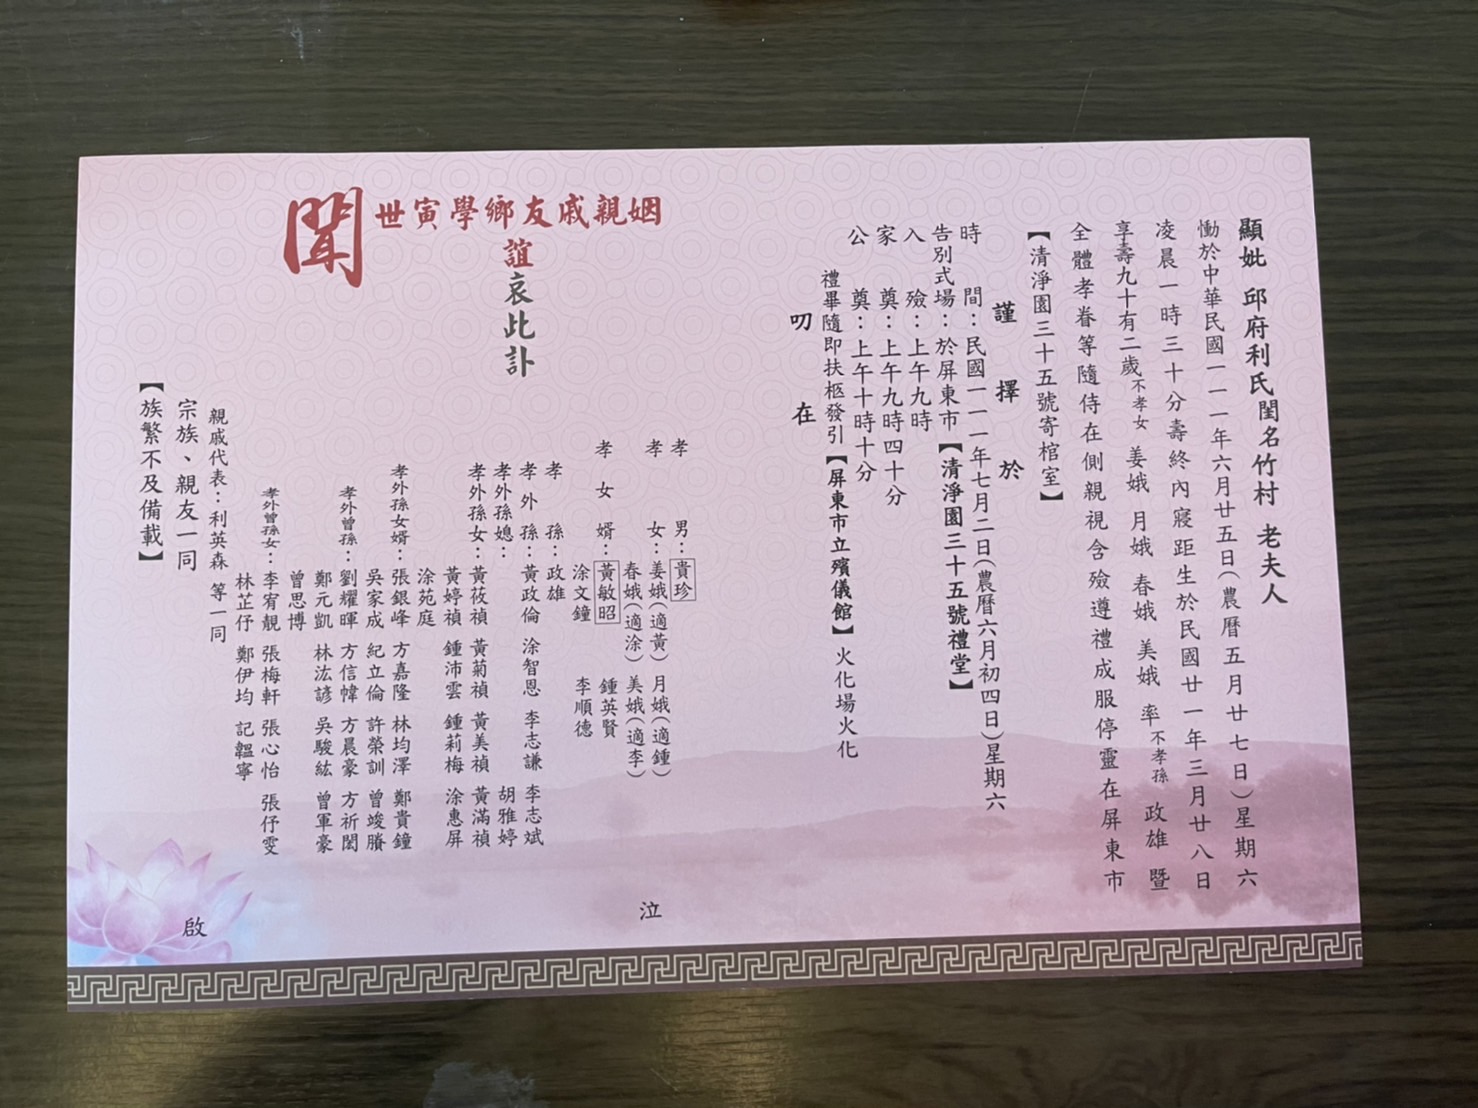 顯妣 邱府利氏閨名竹村 老夫人
慟於中華民國一一一年六月廿五日(農曆五月廿七日)星期六
凌晨一時三十分壽終內寢距生於民國廿一年三月廿八日
享壽九十有二歲不孝女 姜娥 月娥 春娥 美娥 率不孝孫 政雄 暨
全體孝眷等隨侍在側親視含殮遵禮成服停靈在屏東市
【清淨園三十五號寄棺室】
謹擇於
時間:民國一一一年七月二日(農曆六月初四日)星期六
告別式場:於屏東市【清淨園三十五號禮堂】
入殮:上午九時
家奠:上午九時四十分
公奠:上午十時十分
禮畢隨即扶柩發引【屏東市立殯儀館】火化場火化
叨在
姻親戚友鄉學寅世
誼哀此訃
聞
孝男:貴珍
孝女:姜娥(適黃) 月娥(適鍾)
春娥(適涂) 美娥(適李)
孝女婿:黃敏昭 鍾英賢
涂文鐘 李順德
孝孫:政雄
孝外孫:黃政倫 涂智恩 李志謙 李志斌
孝外孫媳: 胡雅婷
孝外孫女:黃莜禎 黃菊禎 黃美禎 黃滿禎
黃婷禎 鍾沛雲 鍾莉梅 涂惠屏
涂苑庭
孝外孫女婿:張銀峰 方嘉隆 林均澤 鄭貴鐘
吳家成 紀立倫 許榮訓 曾竣賸
孝外曾孫:劉耀暉 方信幃 方晨豪 方祈閎
鄭元凱 林汯諺 吳駿紘 曾軍豪
曾思博
孝外曾孫女:李宥靚 張梅軒 張心怡 張伃雯
林芷伃 鄭伊均 記韞寧
泣
親戚代表:利英森 等一同
宗族、親友一同
【族繁不及備載】
啟